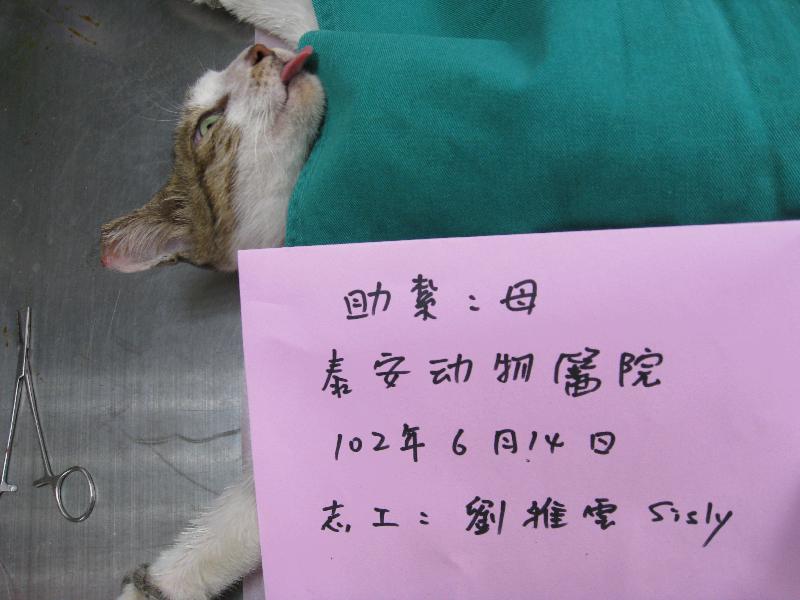 助紮：母
泰安动物醫院
102年6月14日
志工：劉雅雲 Sisly